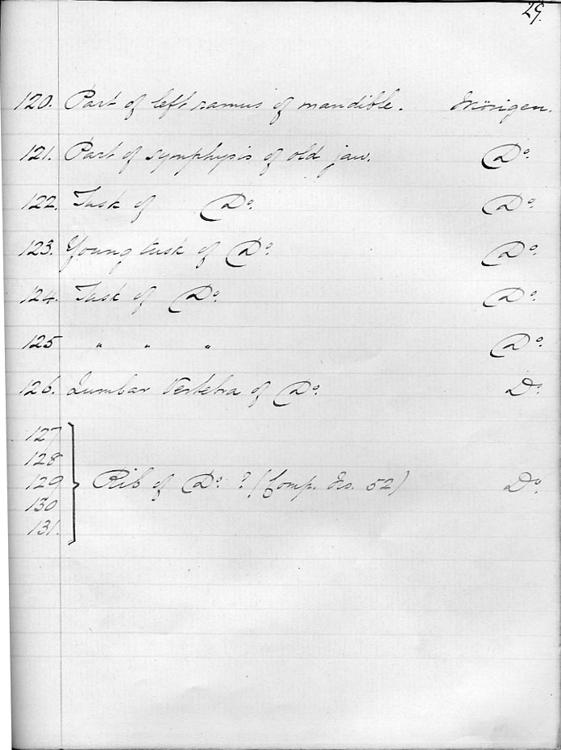 29.
120. Part of left ramus of mandible. Mörigen.
121. Part of symphysis of old jaw. Do.
122. Tusk of Do. Do.
123. Young tusk of Do. Do.
124. Tusk of Do. Do.
125 " " " Do.
126. Lumbar Vertebra of Do. Do.
127
128
129 Rib of Do. ? (Comp. No. 52) Do.
130
131.